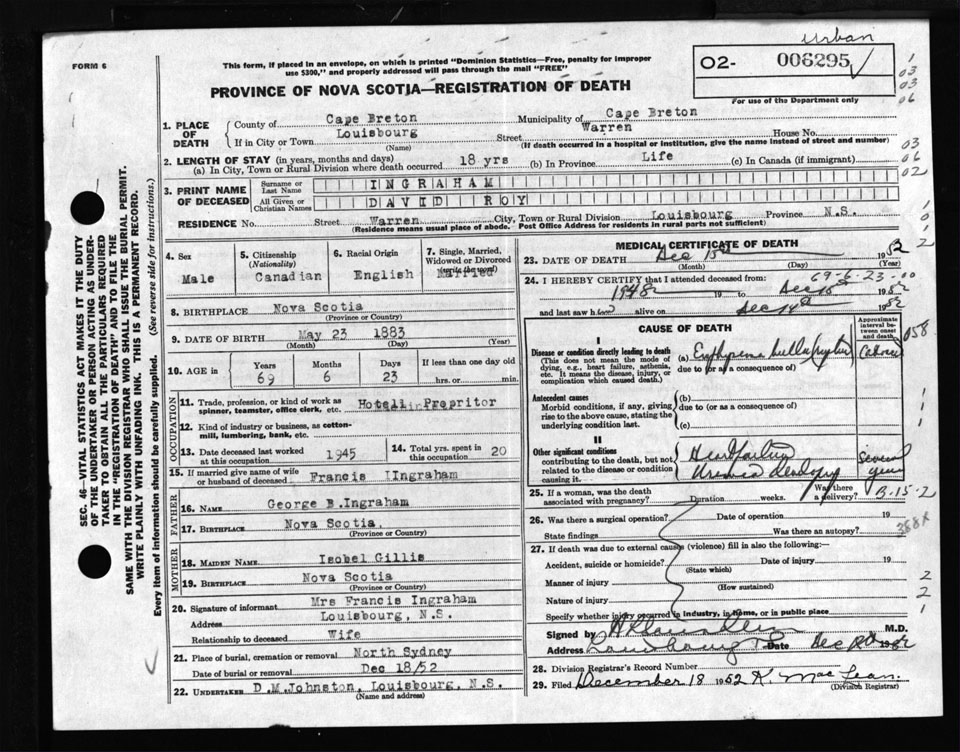 urban
FORM 6
This form, if placed in an envelope, on which is printed "Dominion Statistics—Free, penalty for improper
use $300," and properly addressed will pass through the mail "FREE"
O2- 006295
For use of the Department only
PROVINCE OF NOVA SCOTIA—REGISTRATION OF DEATH
1. PLACE OF DEATH
County of Cape Breton Municipality of Cape Breton
If in City or Town Louisbourg Street Warren House No.
(Name) (If death occurred in a hospital or institution, give the name instead of street and number)
2. LENGTH OF STAY (in years, months and days)
(a) In City, Town or Rural Division where death occurred 18 yrs (b) In Province Life (c) In Canada (if immigrant)
3. PRINT NAME OF DECEASED
Surname or Last Name INGRAHAM
All Given or Christian Names DAVID ROY
RESIDENCE No. Street Warren City, Town or Rural Division Louisbourg Province N.S.
(Residence means usual place of abode. Post Office Address for residents in rural parts not sufficient)
4. Sex Male
5. Citizenship (Nationality) Canadian
6. Racial Origin English
7. Single, Married, Widowed or Divorced (write the word) Married
8. BIRTHPLACE Nova Scotia
(Province or Country)
9. DATE OF BIRTH May 23 1883
(Month) (Day) (Year)
10. AGE in Years Months Days If less than one day old
69 6 23 hrs. or min.
OCCUPATION
11. Trade, profession, or kind of work as
spinner, teamster, office clerk, etc. Hotell Propritor
12. Kind of industry or business, as cotton-
mill, lumbering, bank, etc.
13. Date deceased last worked
at this occupation 1945
14. Total yrs. spent in
this occupation 20
15. If married give name of wife
or husband of deceased Francis IIngraham
FATHER
16. NAME George B.Ingraham
17. BIRTHPLACE Nova Scotia.
(Province or Country)
MOTHER
18. MAIDEN NAME Isobel Gillis
19. BIRTHPLACE Nova Scotia
(Province or Country)
20. Signature of informant Mrs Francis Ingraham
Address Louisbourg, N.S.
Relationship to deceased Wife
21. Place of burial, cremation or removal North Sydney
Date of burial or removal Dec 18/52
22. UNDERTAKER D.M.Johnston, Louisbourg, N.S.
(Name and address)
MEDICAL CERTIFICATE OF DEATH
23. DATE OF DEATH Dec 15th 1952
(Month) (Day) (Year)
69-6-23-00
24. I HEREBY CERTIFY that I attended deceased from:
1948 19 to Dec 15th 1952
and last saw h alive on Dec 14th 1952
CAUSE OF DEATH
Approximate interval between onset and death
I
Disease or condition directly leading to death (a)
(This does not mean the mode of
dying, e.g., heart failure, asthenia,
etc. It means the disease, injury, or
complication which caused death.)
due to (or as a consequence of)
Antecedent causes
Morbid conditions, if any, giving
rise to the above cause, stating the
underlying condition last.
(b)
due to (or as a consequence of)
(c)
II
Other significant conditions
contributing to the death, but not
related to the disease or condition
causing it.
Heart failure
several years
25. If a woman, was the death
associated with pregnancy? Duration weeks. Was there a delivery?
B-15-2
26. Was there a surgical operation? Date of operation 19
State findings Was there an autopsy?
27. If death was due to external causes (violence) fill in also the following:—
Accident, suicide or homicide? Date of injury 19
(State which)
Manner of injury
(How sustained)
Nature of injury
Specify whether injury occurred in industry, in home, or in public place
Signed by M.D.
Address Louisbourg Date Dec 1952
28. Division Registrar's Record Number
29. Filed December 18 1952 K. MacLean.
(Division Registrar)
SEC. 46—VITAL STATISTICS ACT MAKES IT THE DUTY
OF THE UNDERTAKER OR PERSON ACTING AS UNDER-
TAKER TO OBTAIN ALL THE PARTICULARS REQUIRED
IN THE "REGISTRATION OF DEATH" AND TO FILE THE
SAME WITH THE DIVISION REGISTRAR WHO SHALL ISSUE THE BURIAL PERMIT.
WRITE PLAINLY WITH UNFADING INK. THIS IS A PERMANENT RECORD.
Every item of information should be carefully supplied. (See reverse side for instructions.)
1
03
03
06
03
06
02
1
0
1
2
058
1
1
1
2
2
1